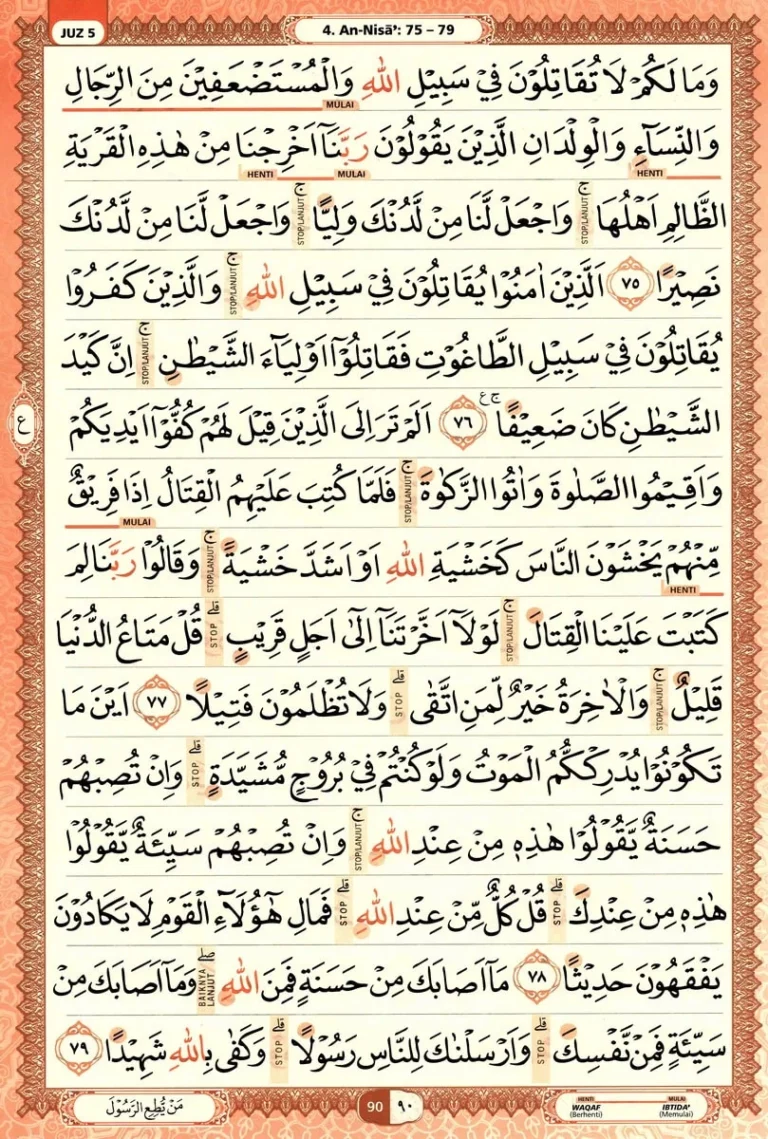 JUZ 5
4. An-Nisā’: 75 – 79
وَمَا لَكُمْ لَا تُقَاتِلُوْنَ فِيْ سَبِيْلِ اللّٰهِ وَالْمُسْتَضْعَفِيْنَ مِنَ الرِّجَالِ
MULAI
وَالنِّسَاۤءِ وَالْوِلْدَانِ الَّذِيْنَ يَقُوْلُوْنَ رَبَّنَآ اَخْرِجْنَا مِنْ هٰذِهِ الْقَرْيَةِ
HENTI MULAI HENTI
الظَّالِمِ اَهْلُهَا ۚ STOP/LANJUT وَاجْعَلْ لَّنَا مِنْ لَّدُنْكَ وَلِيًّا ۚ STOP/LANJUT وَاجْعَلْ لَّنَا مِنْ لَّدُنْكَ
نَصِيْرًا ٧٥ اَلَّذِيْنَ اٰمَنُوْا يُقَاتِلُوْنَ فِيْ سَبِيْلِ اللّٰهِ ۚ STOP/LANJUT وَالَّذِيْنَ كَفَرُوْا
يُقَاتِلُوْنَ فِيْ سَبِيْلِ الطَّاغُوْتِ فَقَاتِلُوْٓا اَوْلِيَاۤءَ الشَّيْطٰنِ ۚ STOP/LANJUT اِنَّ كَيْدَ
ع
الشَّيْطٰنِ كَانَ ضَعِيْفًا ۚ ع ٧٦ اَلَمْ تَرَ اِلَى الَّذِيْنَ قِيْلَ لَهُمْ كُفُّوْٓا اَيْدِيَكُمْ
وَاَقِيْمُوا الصَّلٰوةَ وَاٰتُوا الزَّكٰوةَ ۚ STOP/LANJUT فَلَمَّا كُتِبَ عَلَيْهِمُ الْقِتَالُ اِذَا فَرِيْقٌ
MULAI
مِّنْهُمْ يَخْشَوْنَ النَّاسَ كَخَشْيَةِ اللّٰهِ اَوْ اَشَدَّ خَشْيَةً ۚ STOP/LANJUT وَقَالُوْا رَبَّنَا لِمَ
HENTI
كَتَبْتَ عَلَيْنَا الْقِتَالَ ۚ STOP/LANJUT لَوْلَآ اَخَّرْتَنَآ اِلٰٓى اَجَلٍ قَرِيْبٍ ۗ STOP قُلْ مَتَاعُ الدُّنْيَا
قَلِيْلٌ ۚ STOP/LANJUT وَالْاٰخِرَةُ خَيْرٌ لِّمَنِ اتَّقٰى ۗ STOP وَلَا تُظْلَمُوْنَ فَتِيْلًا ٧٧ اَيْنَ مَا
تَكُوْنُوْا يُدْرِكْكُّمُ الْمَوْتُ وَلَوْ كُنْتُمْ فِيْ بُرُوْجٍ مُّشَيَّدَةٍ ۗ STOP وَاِنْ تُصِبْهُمْ
حَسَنَةٌ يَّقُوْلُوْا هٰذِهٖ مِنْ عِنْدِ اللّٰهِ ۚ STOP/LANJUT وَاِنْ تُصِبْهُمْ سَيِّئَةٌ يَّقُوْلُوْا
هٰذِهٖ مِنْ عِنْدِكَ ۗ STOP قُلْ كُلٌّ مِّنْ عِنْدِ اللّٰهِ ۗ STOP فَمَالِ هٰٓؤُلَاۤءِ الْقَوْمِ لَا يَكَادُوْنَ
يَفْقَهُوْنَ حَدِيْثًا ٧٨ مَآ اَصَابَكَ مِنْ حَسَنَةٍ فَمِنَ اللّٰهِ ۖ BAIKNYA LANJUT وَمَآ اَصَابَكَ مِنْ
سَيِّئَةٍ فَمِنْ نَّفْسِكَ ۗ STOP وَاَرْسَلْنٰكَ لِلنَّاسِ رَسُوْلًا ۗ STOP وَكَفٰى بِاللّٰهِ شَهِيْدًا ٧٩
مَنْ يُّطِعِ الرَّسُوْلَ
90 ٩٠
HENTI MULAI
WAQAF IBTIDA’
(Berhenti) (Memulai)